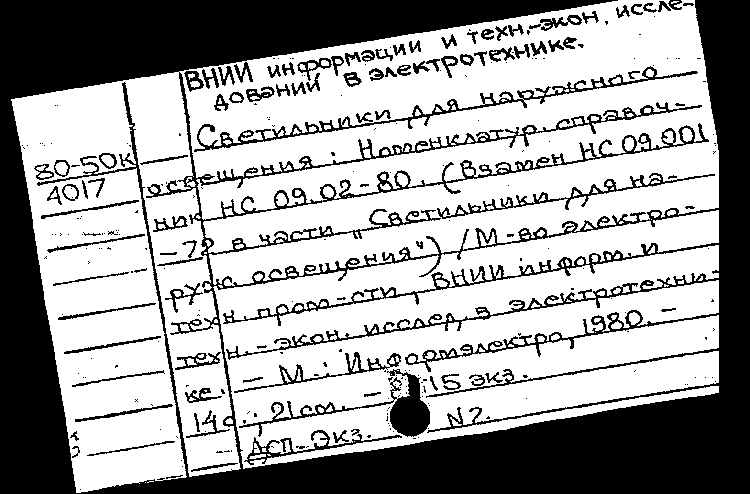 ВНИИ информации и техн.-экон. иссле-
дований в электротехнике.
80-50к
4017
Светильники для наружного
освещения : Номенклатур. справоч-
ник НС 09.02-80. (Взамен НС 09.001
-72 в части „Светильники для на-
руж. освещения") / М-во электро-
техн. пром-сти, ВНИИ информ. и
техн.-экон. исслед. в электротехни-
ке. - М.: Информэлектро, 1980. -
14с.; 21см. - 15 экз.
ДСП-Экз. N2.